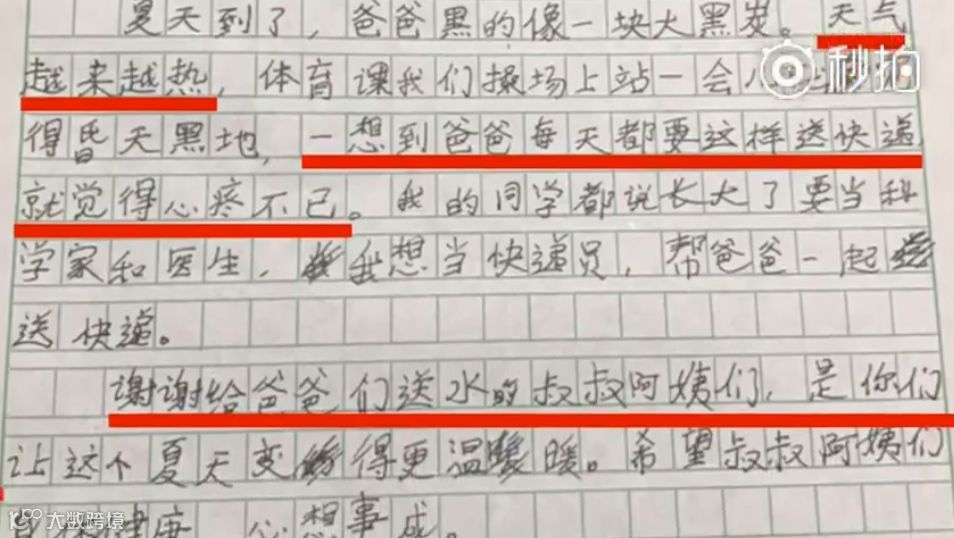 夏天到了，爸爸黑的像一块大黑炭。天气
秒拍
越来越热，体育课我们操场上站一会儿
得昏天黑地，一想到爸爸每天都要这样送快递
就觉得心疼不已。我的同学都说长大了要当科
学家和医生，我想当快递员，帮爸爸一起
送快递。
谢谢给爸爸们送水的叔叔阿姨们，是你们
让这个夏天变得更温暖。希望叔叔阿姨们
大数跨境
身体健康 心想事成。